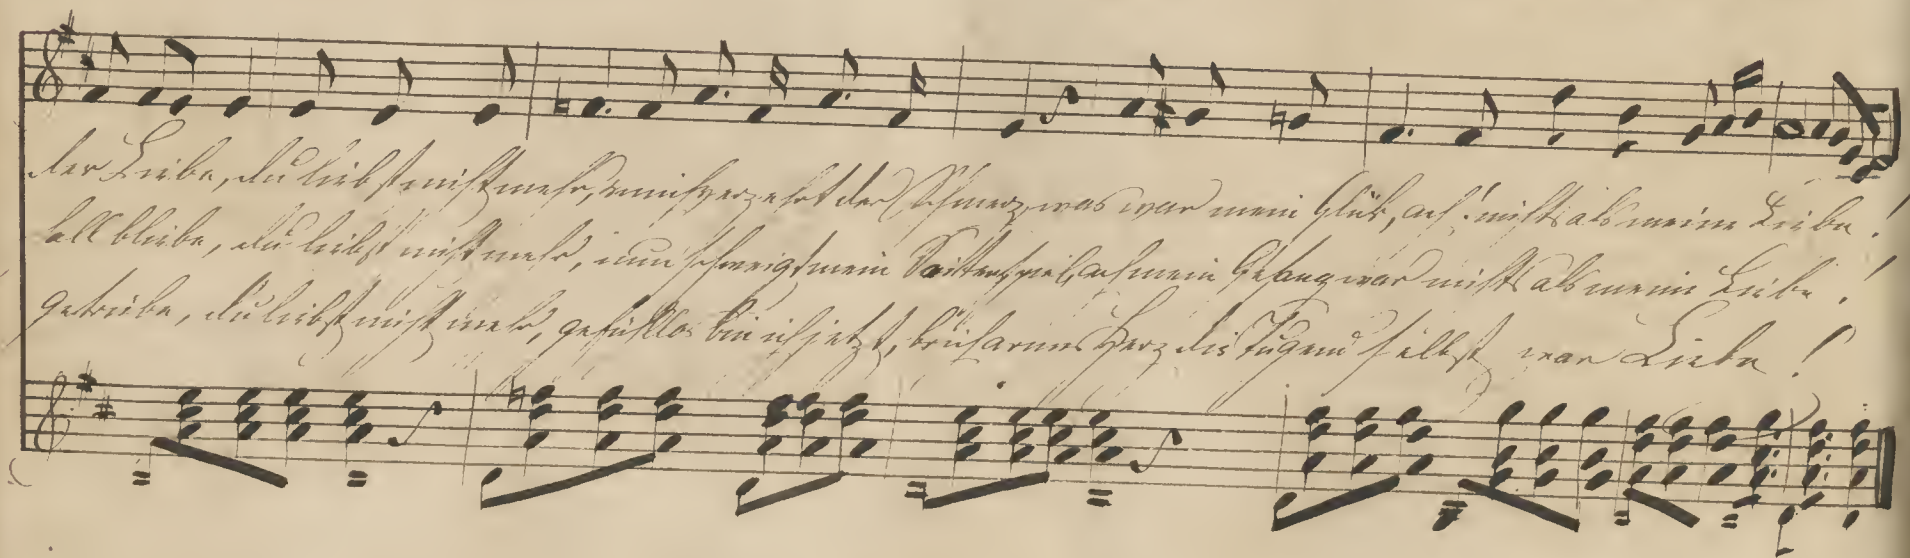 der Liebe, du liebst mich nicht mehr, mich verzehrt der Schmerz, was war mein Glük, ach! nichts als meine Liebe!
all bliebe, du liebst nicht mehr, nun schweigt mein Saitenspiel, ach mein Gesang war nichts als meine Liebe!
getriebe, du liebst nicht mehr, gefühllos bin ich jetzt, brich armes Herz die Tugend selbst war Liebe!